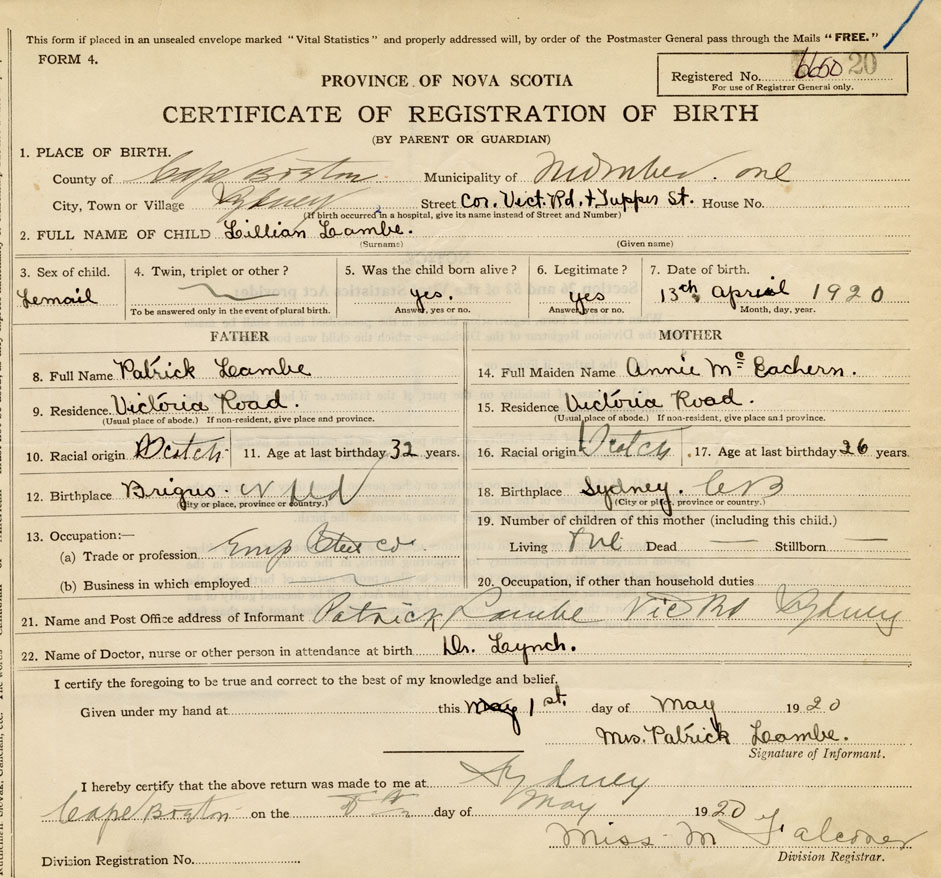 This form if placed in an unsealed envelope marked "Vital Statistics" and properly addressed will, by order of the Postmaster General pass through the Mails "FREE."
FORM 4.
Registered No. 6650 20
For use of Registrar General only.
PROVINCE OF NOVA SCOTIA
CERTIFICATE OF REGISTRATION OF BIRTH
(BY PARENT OR GUARDIAN)
1. PLACE OF BIRTH.
County of Cape Breton Municipality of Number one
City, Town or Village Sydney Street Cor. Vict. Rd. & Tupper St. House No.
(If birth occurred in a hospital, give its name instead of Street and Number)
2. FULL NAME OF CHILD Lillian Lambe.
(Surname) (Given name)
3. Sex of child. 4. Twin, triplet or other? 5. Was the child born alive? 6. Legitimate? 7. Date of birth.
Femail yes. yes 13th April 1920
To be answered only in the event of plural birth. Answer, yes or no. Answer, yes or no. Month, day, year.
FATHER MOTHER
8. Full Name Patrick Lambe 14. Full Maiden Name Annie Mc Eachern.
9. Residence. Victoria Road. 15. Residence Victoria Road.
(Usual place of abode.) If non-resident, give place and province. (Usual place of abode.) If non-resident, give place and province.
10. Racial origin Scotch 11. Age at last birthday 32 years. 16. Racial origin Scotch 17. Age at last birthday 26 years.
12. Birthplace Brigus. Nfld 18. Birthplace Sydney. CB
(City or place, province or country.) (City or place, province or country.)
13. Occupation:— 19. Number of children of this mother (including this child.)
(a) Trade or profession Emp Steel Co. Living Dead — Stillborn —
(b) Business in which employed 20. Occupation, if other than household duties
21. Name and Post Office address of Informant Patrick Lambe Vic Rd Sydney
22. Name of Doctor, nurse or other person in attendance at birth Dr. Lynch.
I certify the foregoing to be true and correct to the best of my knowledge and belief.
Given under my hand at this May 1st. day of May 1920
Mrs. Patrick Lambe.
Signature of Informant.
I hereby certify that the above return was made to me at Sydney
Cape Breton on the day of May 1920
Miss M Falconer
Division Registrar.
Division Registration No.